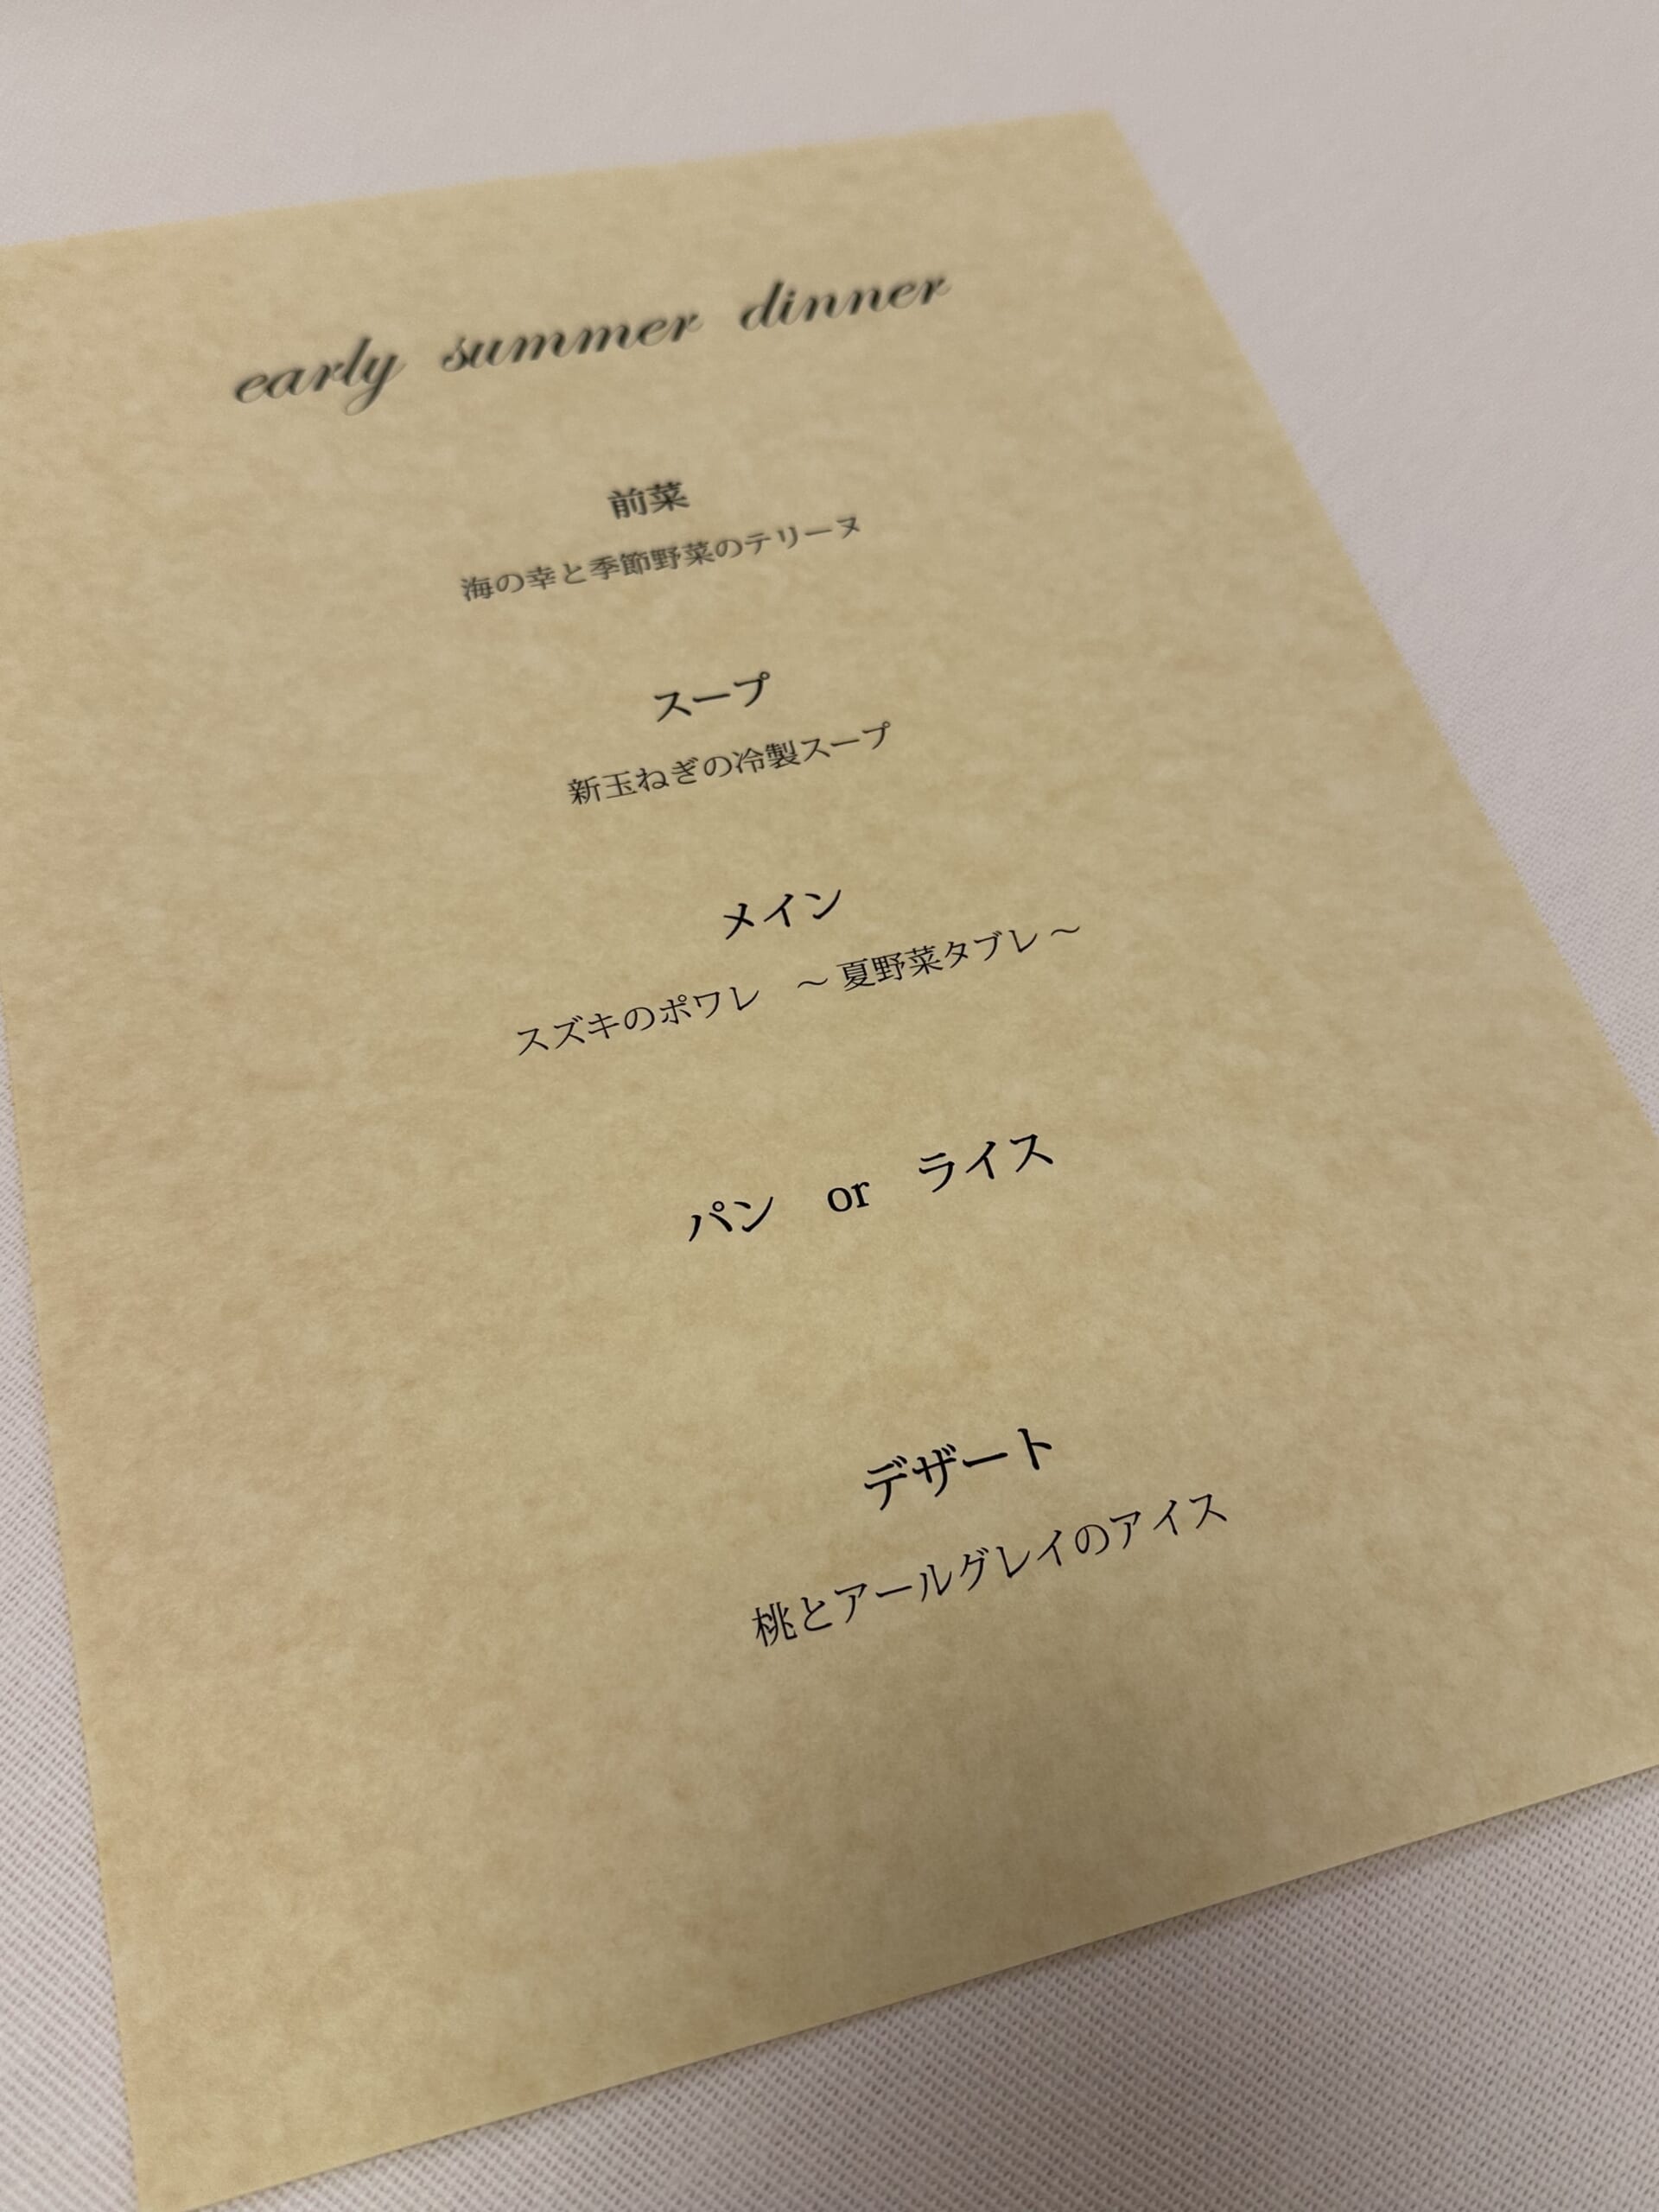 early summer dinner
前菜
海の幸と季節野菜のテリーヌ
スープ
新玉ねぎの冷製スープ
メイン
スズキのポワレ　～ 夏野菜タブレ ～
パン　or　ライス
デザート
桃とアールグレイのアイス